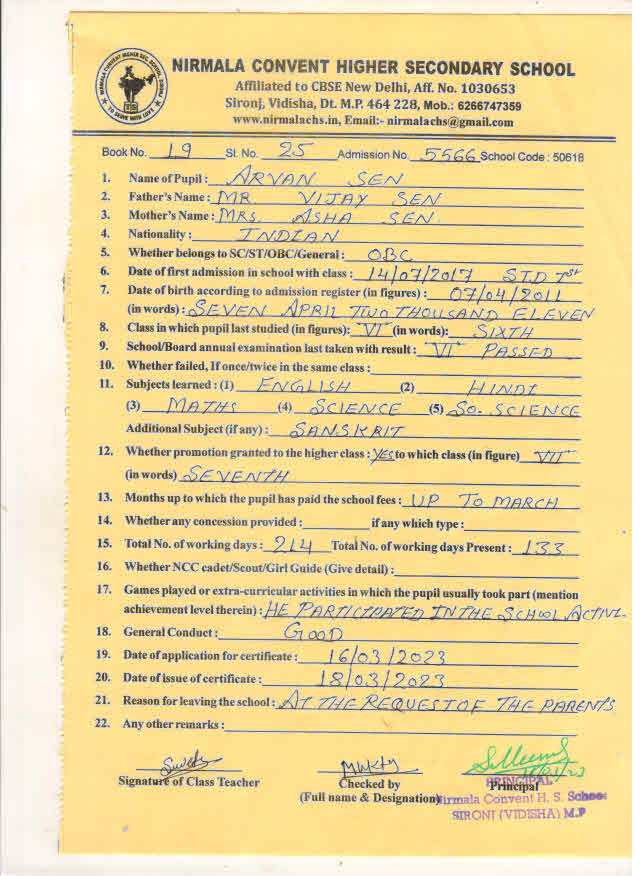 NIRMALA CONVENT HIGHER SECONDARY SCHOOL
Affiliated to CBSE New Delhi, Aff. No. 1030653
Sironj, Vidisha, Dt. M.P. 464 228, Mob.: 6266747359
www.nirmalachs.in, Email:- nirmalachs@gmail.com
Book No. 19 Sl. No. 25 Admission No. 5566 School Code : 50618
1. Name of Pupil : ARVAN SEN
2. Father's Name : MR. VIJAY SEN
3. Mother's Name : MRS. ASHA SEN
4. Nationality : INDIAN
5. Whether belongs to SC/ST/OBC/General : OBC
6. Date of first admission in school with class : 14/07/2017 STD 1st
7. Date of birth according to admission register (in figures) : 07/04/2011
(in words) : SEVEN APRIL TWO THOUSAND ELEVEN
8. Class in which pupil last studied (in figures): VI (in words): SIXTH
9. School/Board annual examination last taken with result : VI PASSED
10. Whether failed, If once/twice in the same class :
11. Subjects learned : (1) ENGLISH (2) HINDI
(3) MATHS (4) SCIENCE (5) SO. SCIENCE
Additional Subject (if any) : SANSKRIT
12. Whether promotion granted to the higher class : Yes to which class (in figure) VII
(in words) SEVENTH
13. Months up to which the pupil has paid the school fees : UP TO MARCH
14. Whether any concession provided : if any which type :
15. Total No. of working days : 214 Total No. of working days Present : 133
16. Whether NCC cadet/Scout/Girl Guide (Give detail) :
17. Games played or extra-curricular activities in which the pupil usually took part (mention
achievement level therein) : HE PARTICIPATED IN THE SCHOOL ACTIVI-
18. General Conduct : GOOD
19. Date of application for certificate : 16/03/2023
20. Date of issue of certificate : 18/03/2023
21. Reason for leaving the school : AT THE REQUEST OF THE PARENTS
22. Any other remarks :
Signature of Class Teacher Checked by Principal
(Full name & Designation)
PRINCIPAL
Nirmala Convent H. S. School
SIRONJ (VIDISHA) M.P